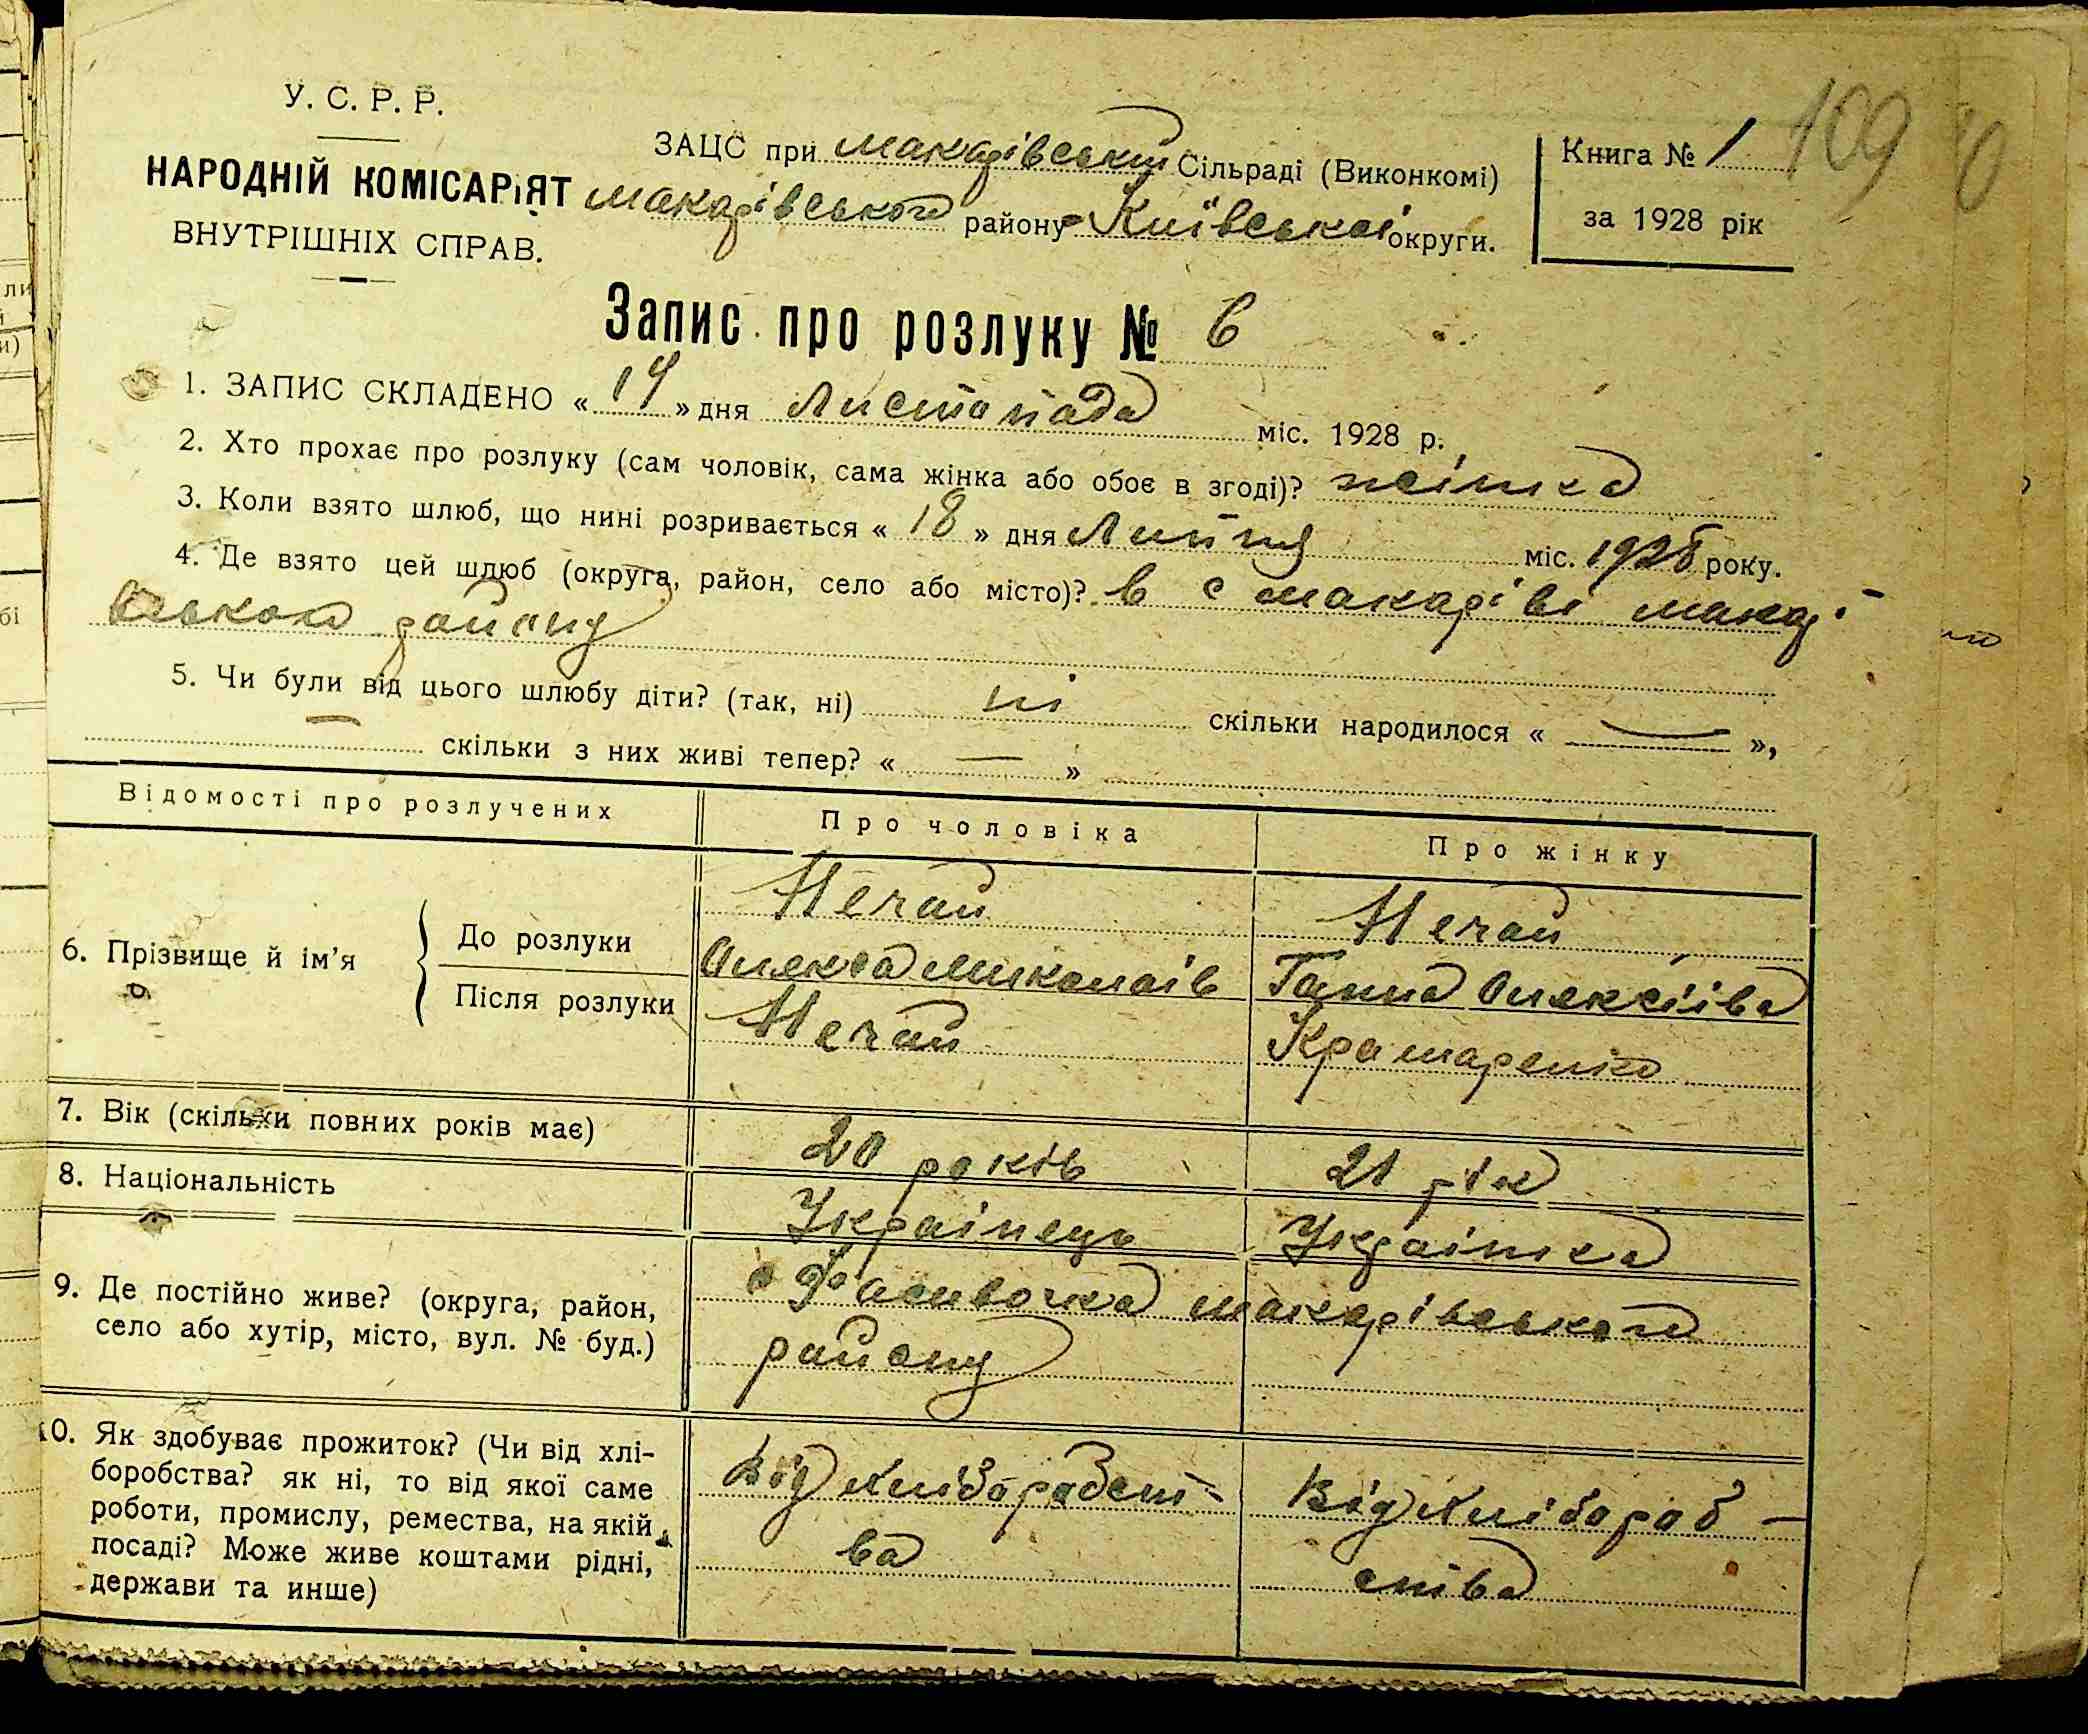 У. С. Р. Р.
НАРОДНІЙ КОМІСАРіЯТ
ВНУТРІШНІХ СПРАВ.
ЗАЦС при Макарівській Сільраді (Виконкомі)
Макарівського району Київської округи.
Книга № 1
за 1928 рік
109
Запис про розлуку № 6
1. ЗАПИС СКЛАДЕНО « 14 » дня Листопада міс. 1928 р.
2. Хто прохає про розлуку (сам чоловік, сама жінка або обоє в згоді)? жінка
3. Коли взято шлюб, що нині розривається « 18 » дня Липня міс. 1928 року.
4. Де взято цей шлюб (округа, район, село або місто)? в с Макарові Макарі
вського району
5. Чи були від цього шлюбу діти? (так, ні) ні скільки народилося « — »,
— скільки з них живі тепер? « — »
Відомості про розлучених
Про чоловіка
Про жінку
6. Прізвище й ім'я
До розлуки
Після розлуки
Нечай
Олекса Миколаів
Нечай
Нечай
Ганна Олексііва
Крамаренко
7. Вік (скільки повних років має)
20 років
21 рік
8. Національність
Украінець
Украінка
9. Де постійно живе? (округа, район,
село або хутір, місто, вул. № буд.)
с Фасивочка Макарівського
району
10. Як здобуває прожиток? (Чи від хлі-
боробства? як ні, то від якої саме
роботи, промислу, ремества, на якій
посаді? Може живе коштами рідні,
держави та инше)
Від Хлібороბст-
ва
Від Хлібороб-
ства